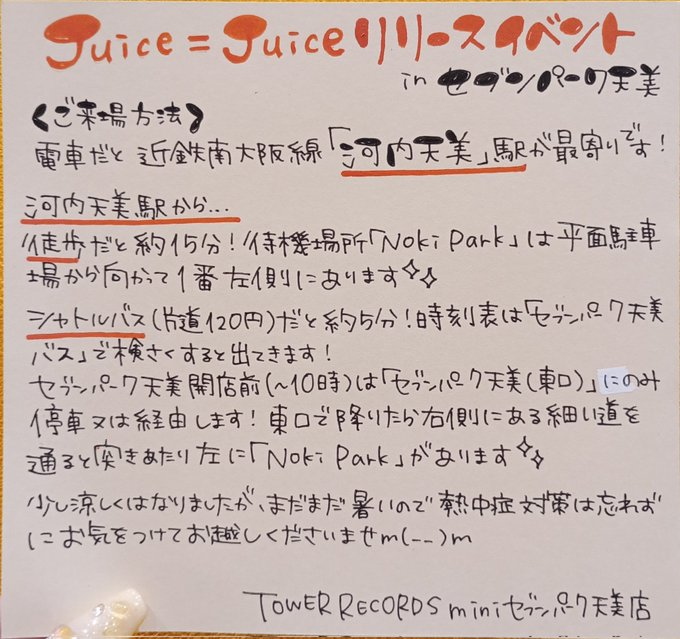 Juice=Juiceリリースイベント
in セブンパーク天美
<ご来場方法>
電車だと近鉄南大阪線「河内天美」駅が最寄りです!
河内天美駅から...
徒歩だと約15分!待機場所「Noki Park」は平面駐車
場から向かって1番左側にあります✧✧
シャトルバス(片道120円)だと約5分!時刻表は「セブンパーク天美
バス」で検さくすると出てきます!
セブンパーク天美開店前(~10時)は「セブンパーク天美(東口)」にのみ
停車又は経由します!東口で降りたら右側にある細い道を
通ると突きあたり左に「Noki Park」があります✧✧
少し涼しくはなりましたが、まだまだ暑いので熱中症対策は忘れず
にお気をつけてお越しくださいませm(--)m
TOWER RECORDS miniセブンパーク天美店